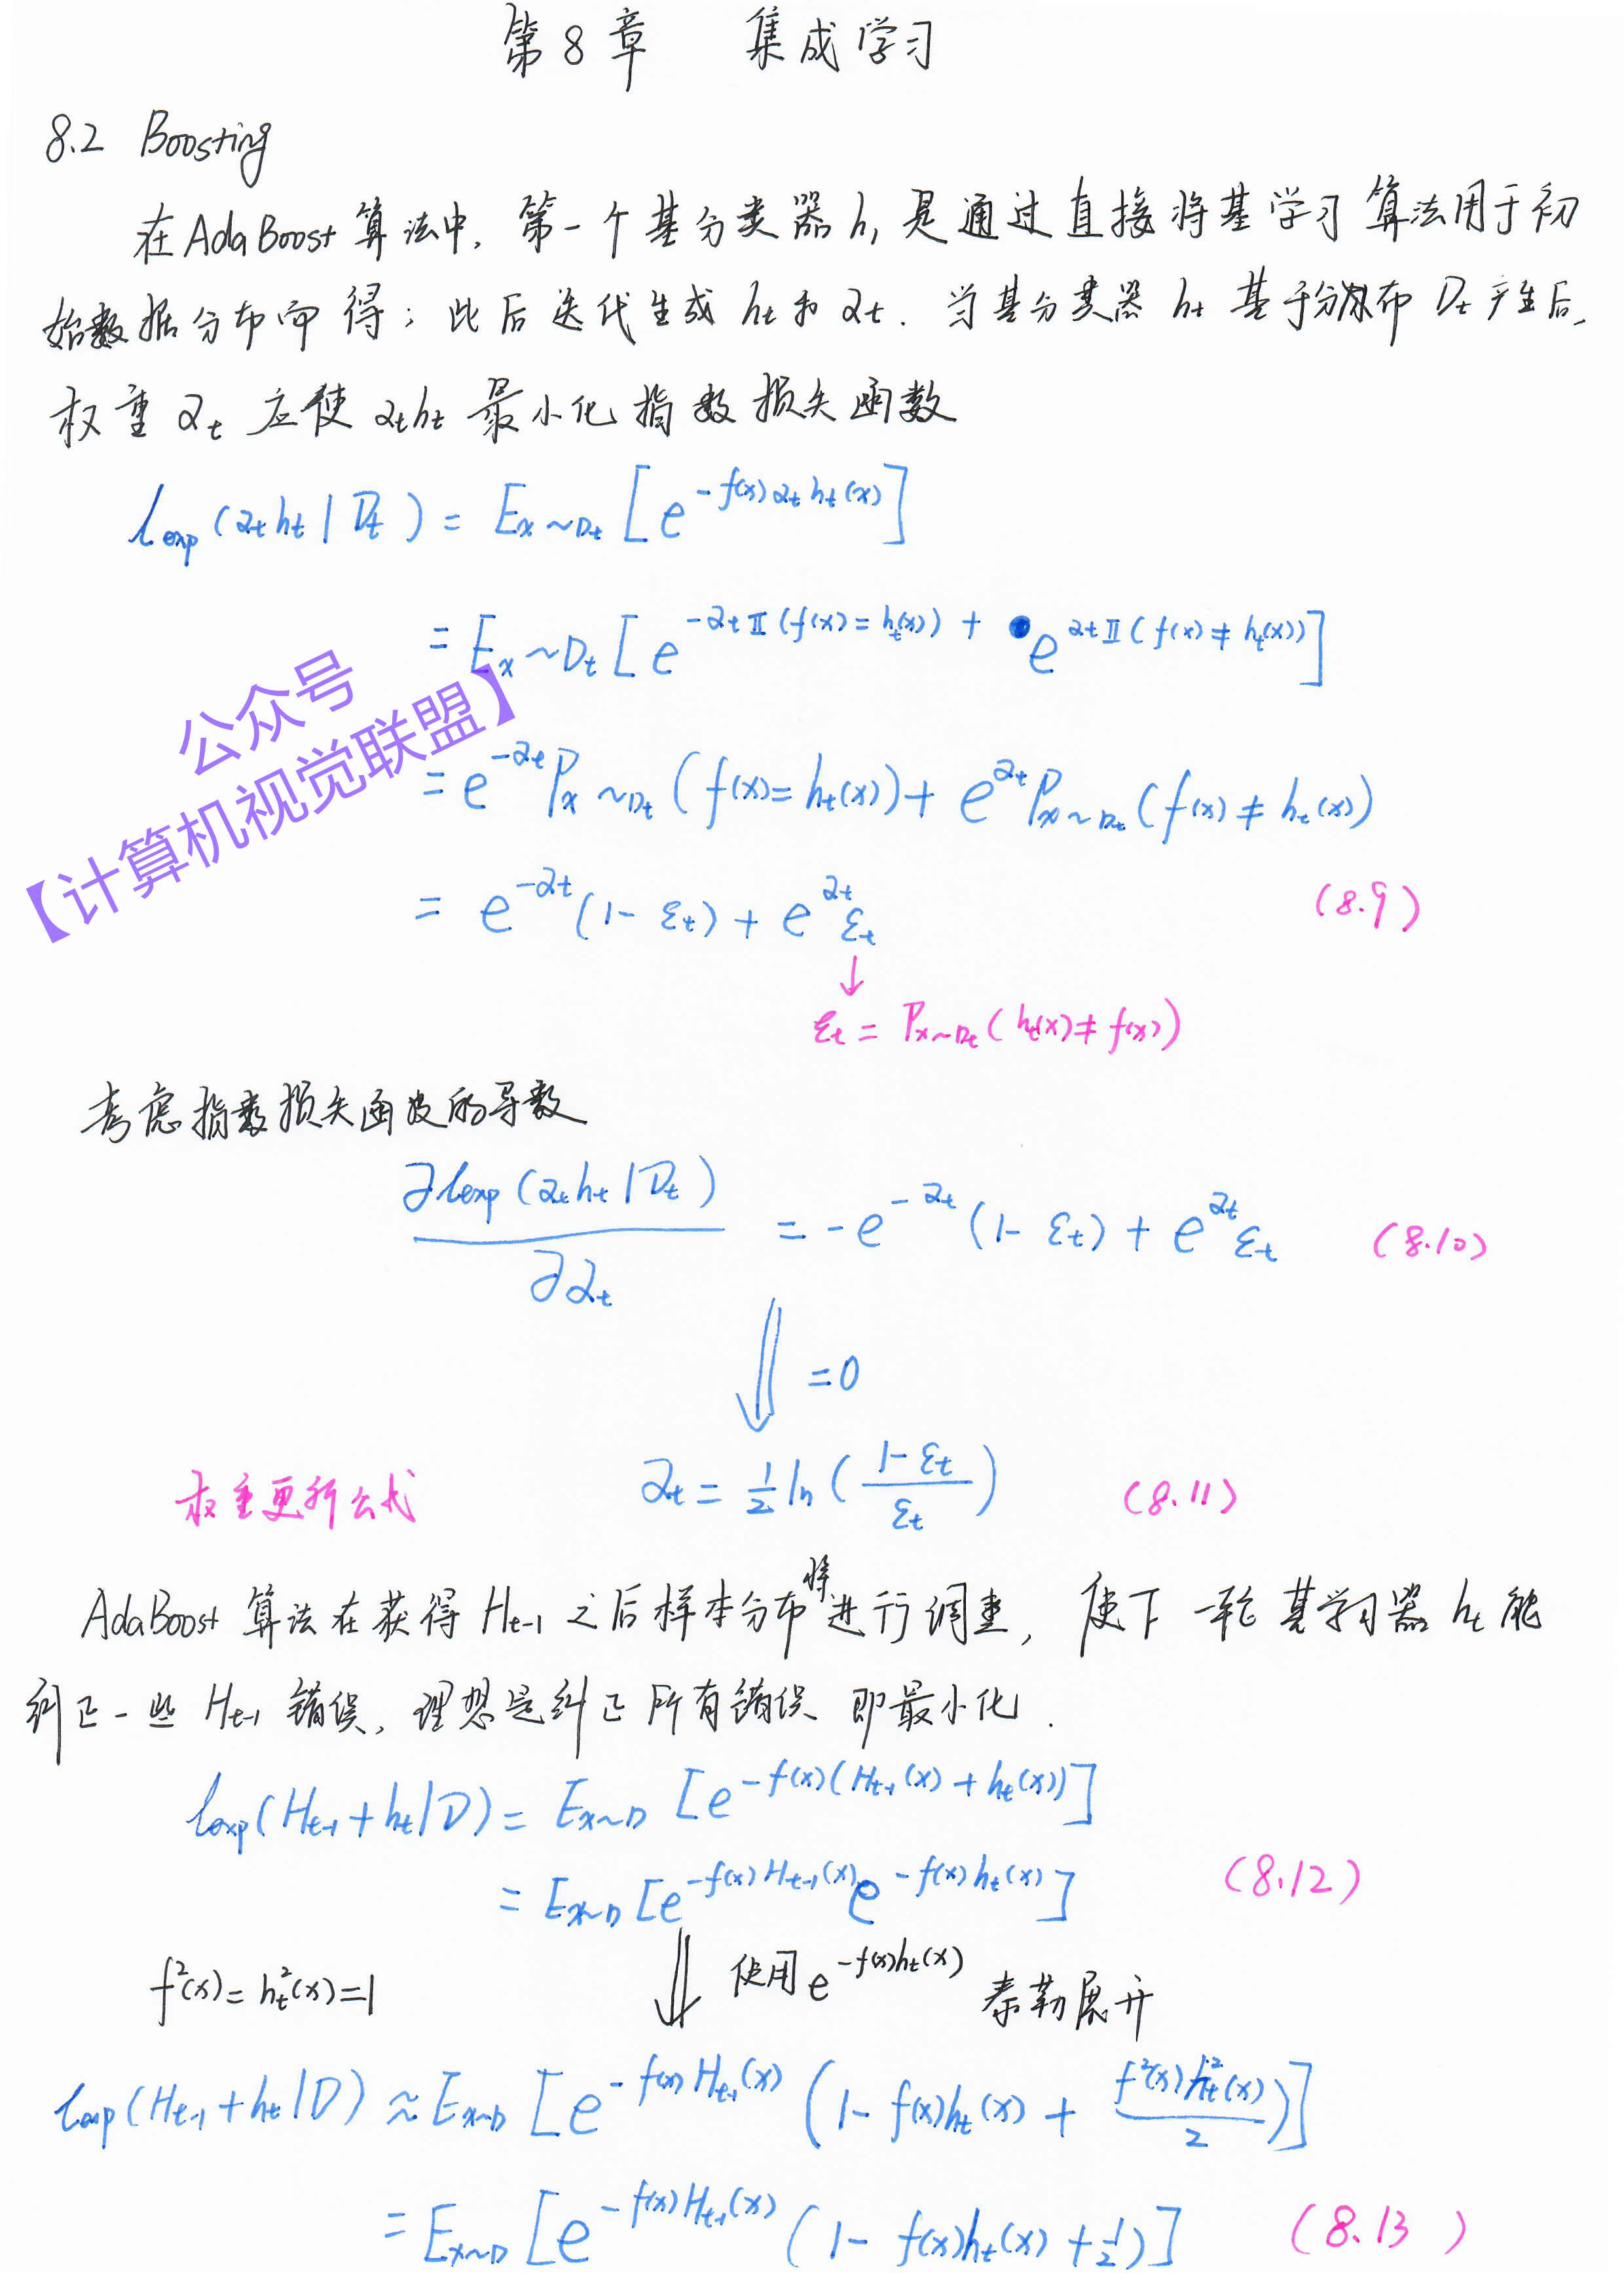 第8章 集成学习
8.2 Boosting
在AdaBoost算法中，第一个基分类器h₁是通过直接将基学习算法用于初
始数据分布而得；此后迭代生成hₜ和αₜ. 当基分类器hₜ基于分布Dₜ产生后，
权重αₜ应使αₜhₜ最小化指数损失函数
ℓexp(αₜhₜ|Dₜ) = E_{x~Dₜ}[e^{-f(x)αₜhₜ(x)}]
= E_{x~Dₜ}[e^{-αₜ𝕀(f(x)=hₜ(x))} + e^{αₜ𝕀(f(x)≠hₜ(x))}]
公众号
【计算机视觉联盟】
= e^{-αₜ}P_{x~Dₜ}(f(x)=hₜ(x)) + e^{αₜ}P_{x~Dₜ}(f(x)≠hₜ(x))
= e^{-αₜ}(1-εₜ) + e^{αₜ}εₜ (8.9)
↓
εₜ = P_{x~Dₜ}(hₜ(x)≠f(x))
考虑指数损失函数的导数
∂ℓexp(αₜhₜ|Dₜ)/∂αₜ = -e^{-αₜ}(1-εₜ) + e^{αₜ}εₜ (8.10)
⇓ =0
权重更新公式 αₜ = ½ln((1-εₜ)/εₜ) (8.11)
AdaBoost算法在获得Hₜ₋₁之后样本分布将进行调整，使下一轮基学习器hₜ能
纠正一些Hₜ₋₁错误，理想是纠正所有错误 即最小化.
ℓexp(Hₜ₋₁+hₜ|D) = E_{x~D}[e^{-f(x)(Hₜ₋₁(x)+hₜ(x))}]
= E_{x~D}[e^{-f(x)Hₜ₋₁(x)}e^{-f(x)hₜ(x)}] (8.12)
f²(x)=hₜ²(x)=1 ⇓ 使用e^{-f(x)hₜ(x)} 泰勒展开
ℓexp(Hₜ₋₁+hₜ|D) ≈ E_{x~D}[e^{-f(x)Hₜ₋₁(x)}(1-f(x)hₜ(x)+f²(x)hₜ²(x)/2)]
= E_{x~D}[e^{-f(x)Hₜ₋₁(x)}(1-f(x)hₜ(x)+½)] (8.13)